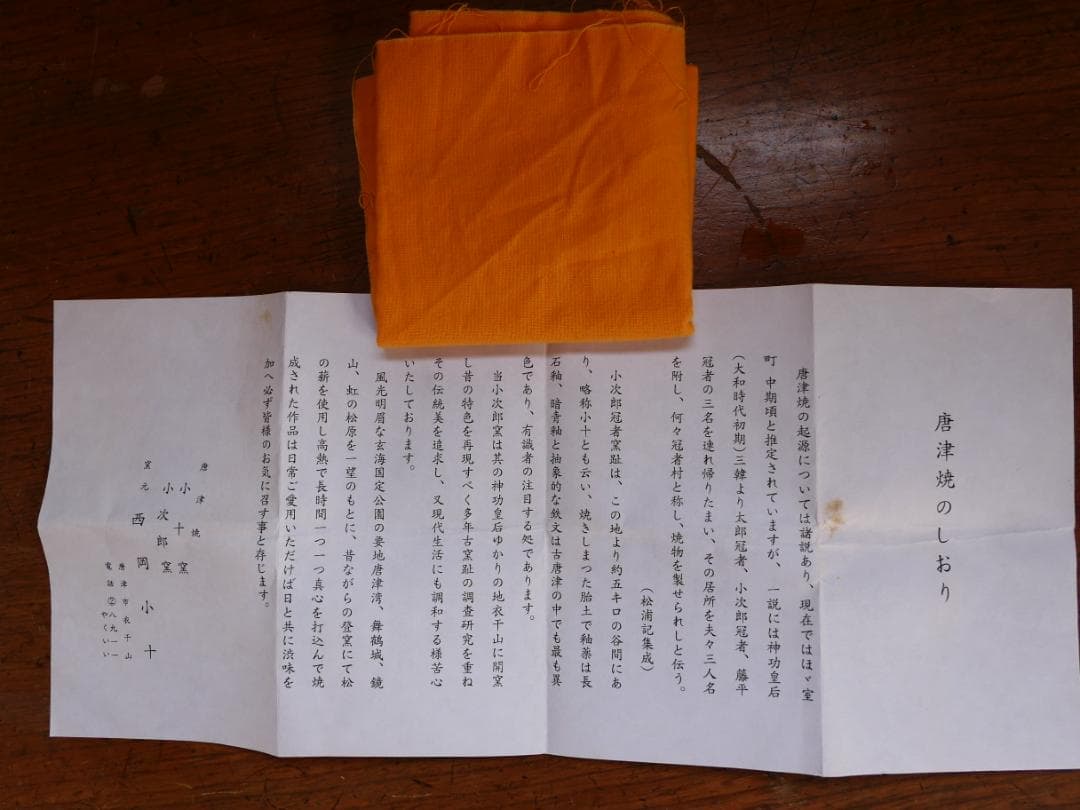 唐津焼のしおり
唐津焼の起源については諸説あり、現在ではほゞ室
町 中期頃と推定されていますが、一説には神功皇后
(大和時代初期)三韓より太郎冠者、小次郎冠者、藤平
冠者の三名を連れ帰りたまい、その居所を夫々三人名
を附し、何々冠者村と称し、焼物を製せられしと伝う。
(松浦記集成)
小次郎冠者窯趾は、この地より約五キロの谷間にあ
り、略称小十とも云い、焼きしまつた胎土で釉薬は長
石釉、暗青釉と抽象的な鉄文は古唐津の中でも最も異
色であり、有識者の注目する処であります。
当小次郎窯は其の神功皇后ゆかりの地衣干山に開窯
し昔の特色を再現すべく多年古窯趾の調査研究を重ね
その伝統美を追求し、又現代生活にも調和する様苦心
いたしております。
風光明眉な玄海国定公園の要地唐津湾、舞鶴城、鏡
山、虹の松原を一望のもとに、昔ながらの登窯にて松
の薪を使用し高熱で長時間一つ一つ真心を打込んで焼
成された作品は日常ご愛用いただけば日と共に渋味を
加へ必ず皆様のお気に召す事と存じます。
唐津焼
小十窯
小次郎窯
窯元 西岡小十
唐津市衣干山
電話②八九一一
やくいい